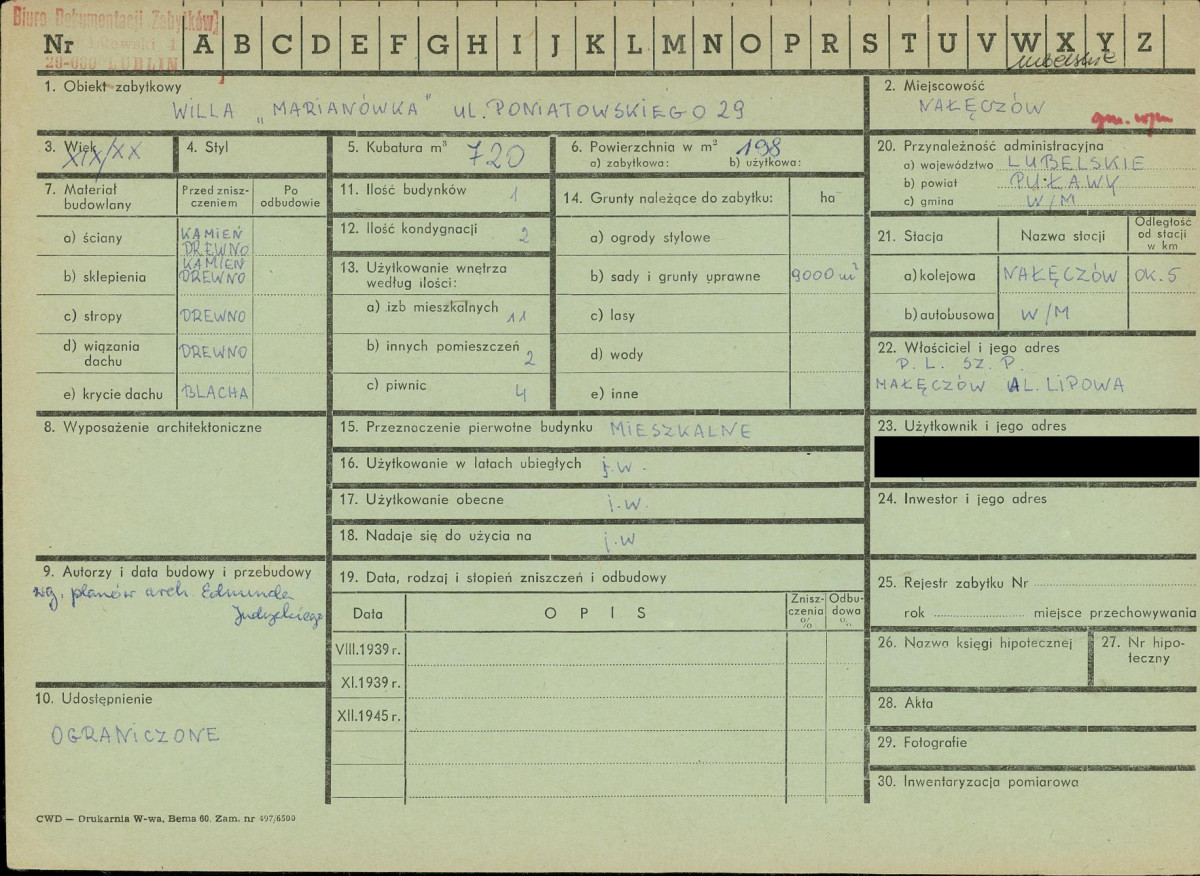 Biuro Dokumentacji Zabytków
20-000 LUBLIN
Nr A B C D E F G H I J K L M N O P R S T U V W X Y Z
lubelskie
1. Obiekt zabytkowy
WILLA „MARIANÓWKA" UL. PONIATOWSKIEGO 29
2. Miejscowość
NAŁĘCZÓW
3. Wiek
XIX/XX
4. Styl
5. Kubatura m³ 720
6. Powierzchnia w m² 198
a) zabytkowa: b) użytkowa:
7. Materiał budowlany
Przed zniszczeniem
Po odbudowie
a) ściany KAMIEŃ DREWNO
b) sklepienia KAMIEŃ DREWNO
c) stropy DREWNO
d) wiązania dachu DREWNO
e) krycie dachu BLACHA
8. Wyposażenie architektoniczne
9. Autorzy i data budowy i przebudowy
wg. planów arch. Edmunda
10. Udostępnienie
OGRANICZONE
11. Ilość budynków 1
12. Ilość kondygnacji 2
13. Użytkowanie wnętrza
według ilości:
a) izb mieszkalnych 11
b) innych pomieszczeń 2
c) piwnic 4
14. Grunty należące do zabytku: ha
a) ogrody stylowe
b) sady i grunty uprawne 9000 m²
c) lasy
d) wody
e) inne
15. Przeznaczenie pierwotne budynku MIESZKALNE
16. Użytkowanie w latach ubiegłych j.w.
17. Użytkowanie obecne j.w.
18. Nadaje się do użycia na j.w
19. Data, rodzaj i stopień zniszczeń i odbudowy
Data OPIS Zniszczenia % Odbudowa %
VIII.1939 r.
XI.1939 r.
XII.1945 r.
20. Przynależność administracyjna
a) województwo LUBELSKIE
b) powiat PUŁAWY
c) gmina W/M
21. Stacja Nazwa stacji Odległość od stacji w km
a) kolejowa NAŁĘCZÓW OK. 5
b) autobusowa W/M
22. Właściciel i jego adres
P. L. SZ. P.
NAŁĘCZÓW AL. LIPOWA
23. Użytkownik i jego adres
24. Inwestor i jego adres
25. Rejestr zabytku Nr
rok miejsce przechowywania
26. Nazwa księgi hipotecznej
27. Nr hipoteczny
28. Akta
29. Fotografie
30. Inwentaryzacja pomiarowa
CWD — Drukarnia W-wa, Bema 60. Zam. nr 497/6500